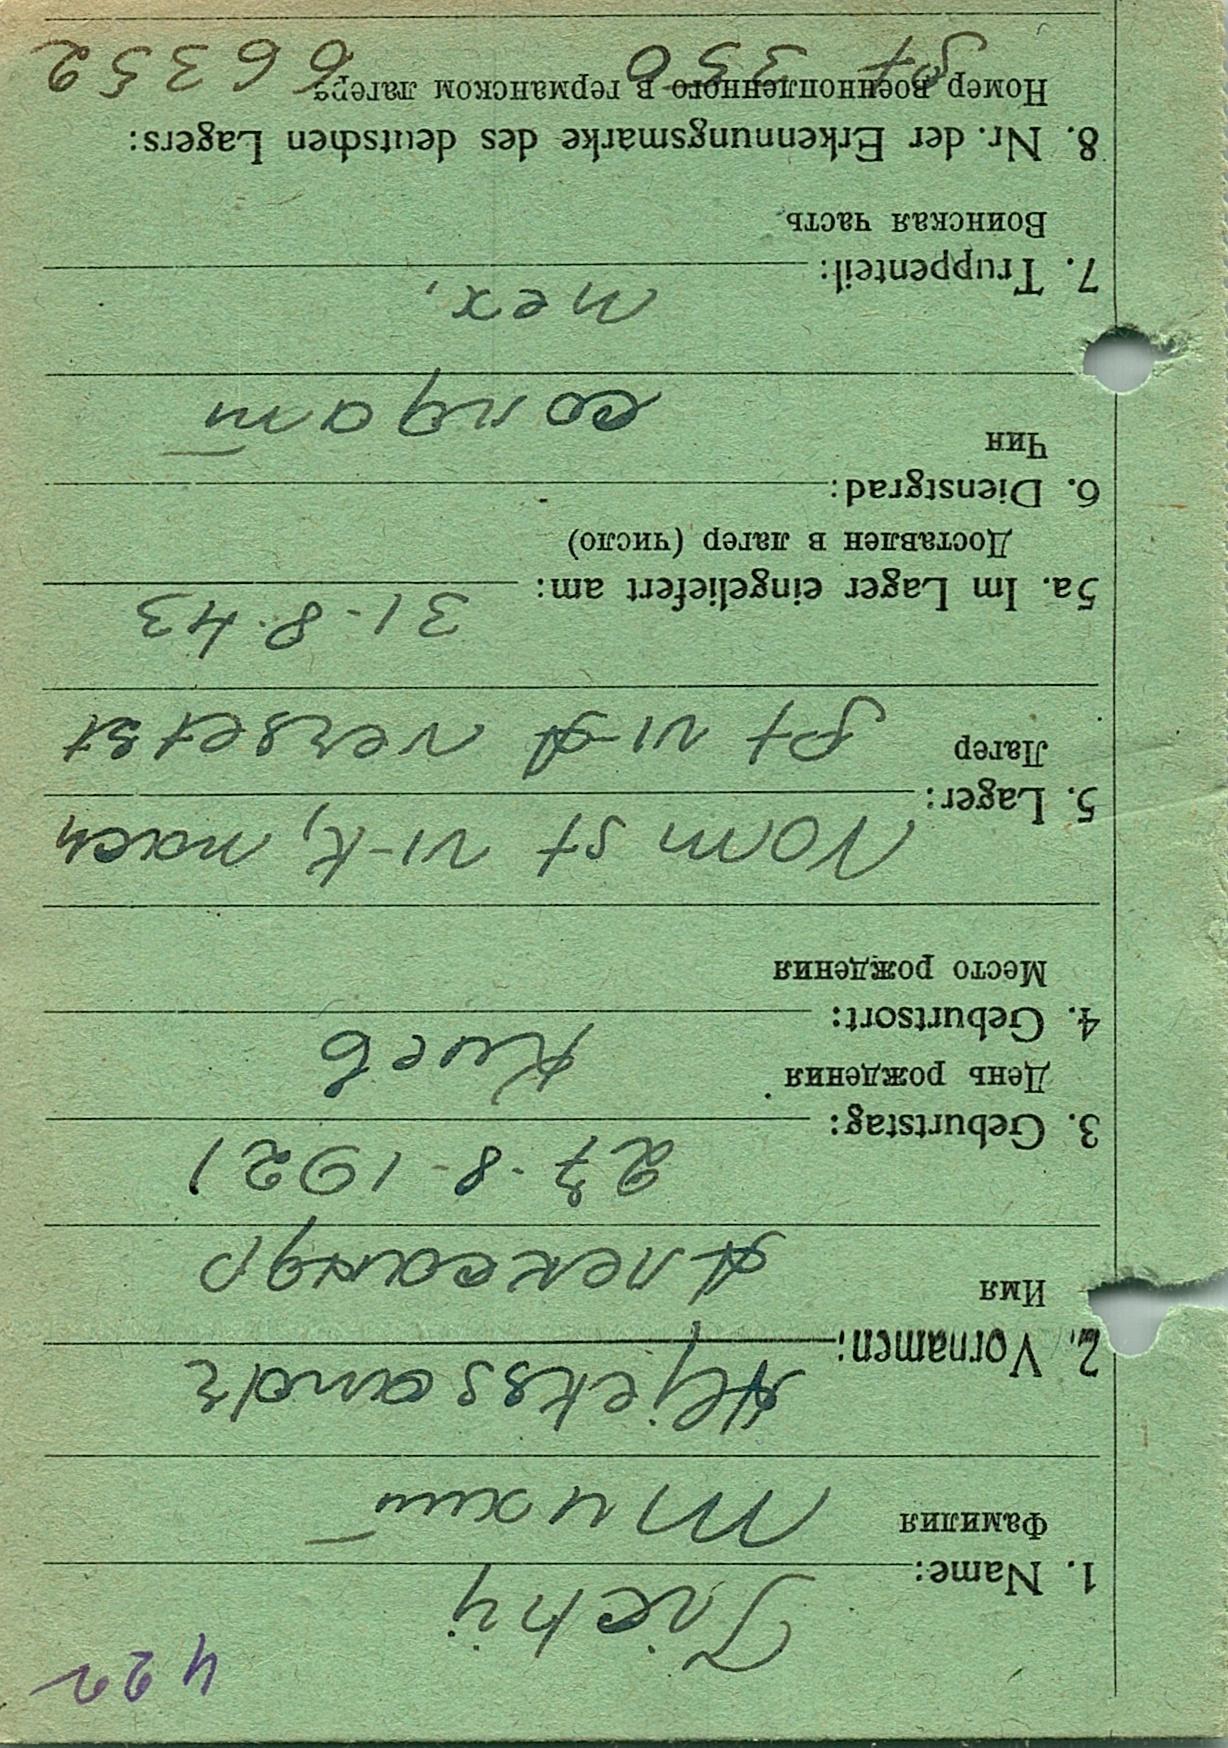 422
1. Name: Tichÿ
Фамилия Тихий
2. Vornamen: Aljekssandr
Имя Александр
3. Geburtstag: 27-8-1921
День рождения
4. Geburtsort: Киев
Место рождения
Vom St VI-K, nach
5. Lager:
Лагер St VI-A versetst
5a. Im Lager eingeliefert am: 31-8-43
Доставлен в лагер (число)
6. Dienstgrad:
Чин солдат
7. Truppenteil: пех.
Воинская часть
8. Nr. der Erkennungsmarke des deutschen Lagers:
Номер военнопленного в германском лагере
St 350 66352